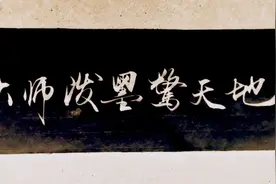 大师泼墨惊天地